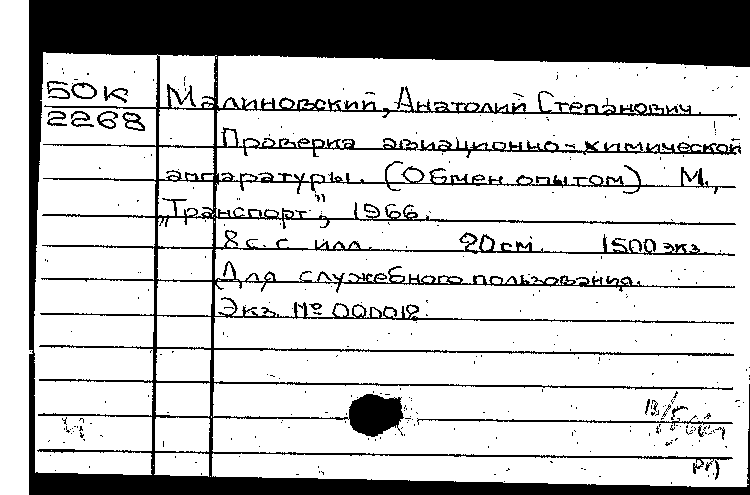 50К
2268
Малиновский, Анатолий Степанович.
Проверка авиационно-химической
аппаратуры. (Обмен опытом) М.,
„Транспорт", 1966.
8 с. с илл. 20 см. 1500 экз.
Для служебного пользования.
Экз. № 000012.
Ч
РП